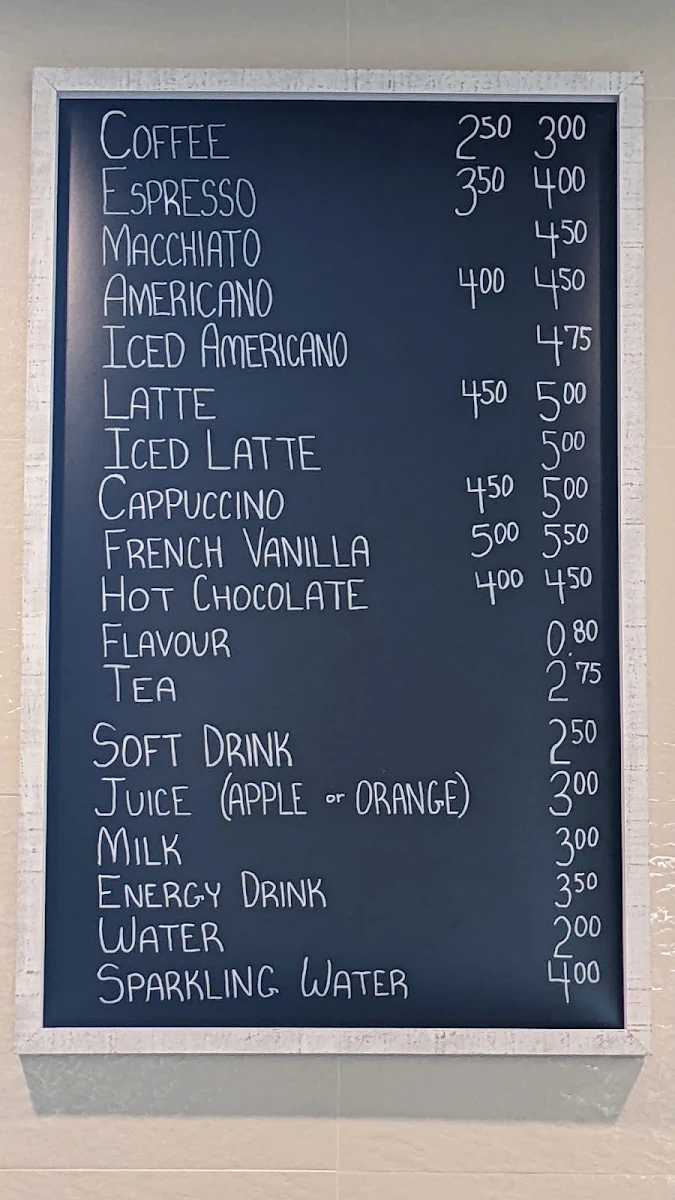 COFFEE 2 50 3 00
ESPRESSO 3 50 4 00
MACCHIATO 4 50
AMERICANO 4 00 4 50
ICED AMERICANO 4 75
LATTE 4 50 5 00
ICED LATTE 5 00
CAPPUCCINO 4 50 5 00
FRENCH VANILLA 5 00 5 50
HOT CHOCOLATE 4 00 4 50
FLAVOUR 0.80
TEA 2 75
SOFT DRINK 2 50
JUICE (APPLE or ORANGE) 3 00
MILK 3 00
ENERGY DRINK 3 50
WATER 2 00
SPARKLING WATER 4 00